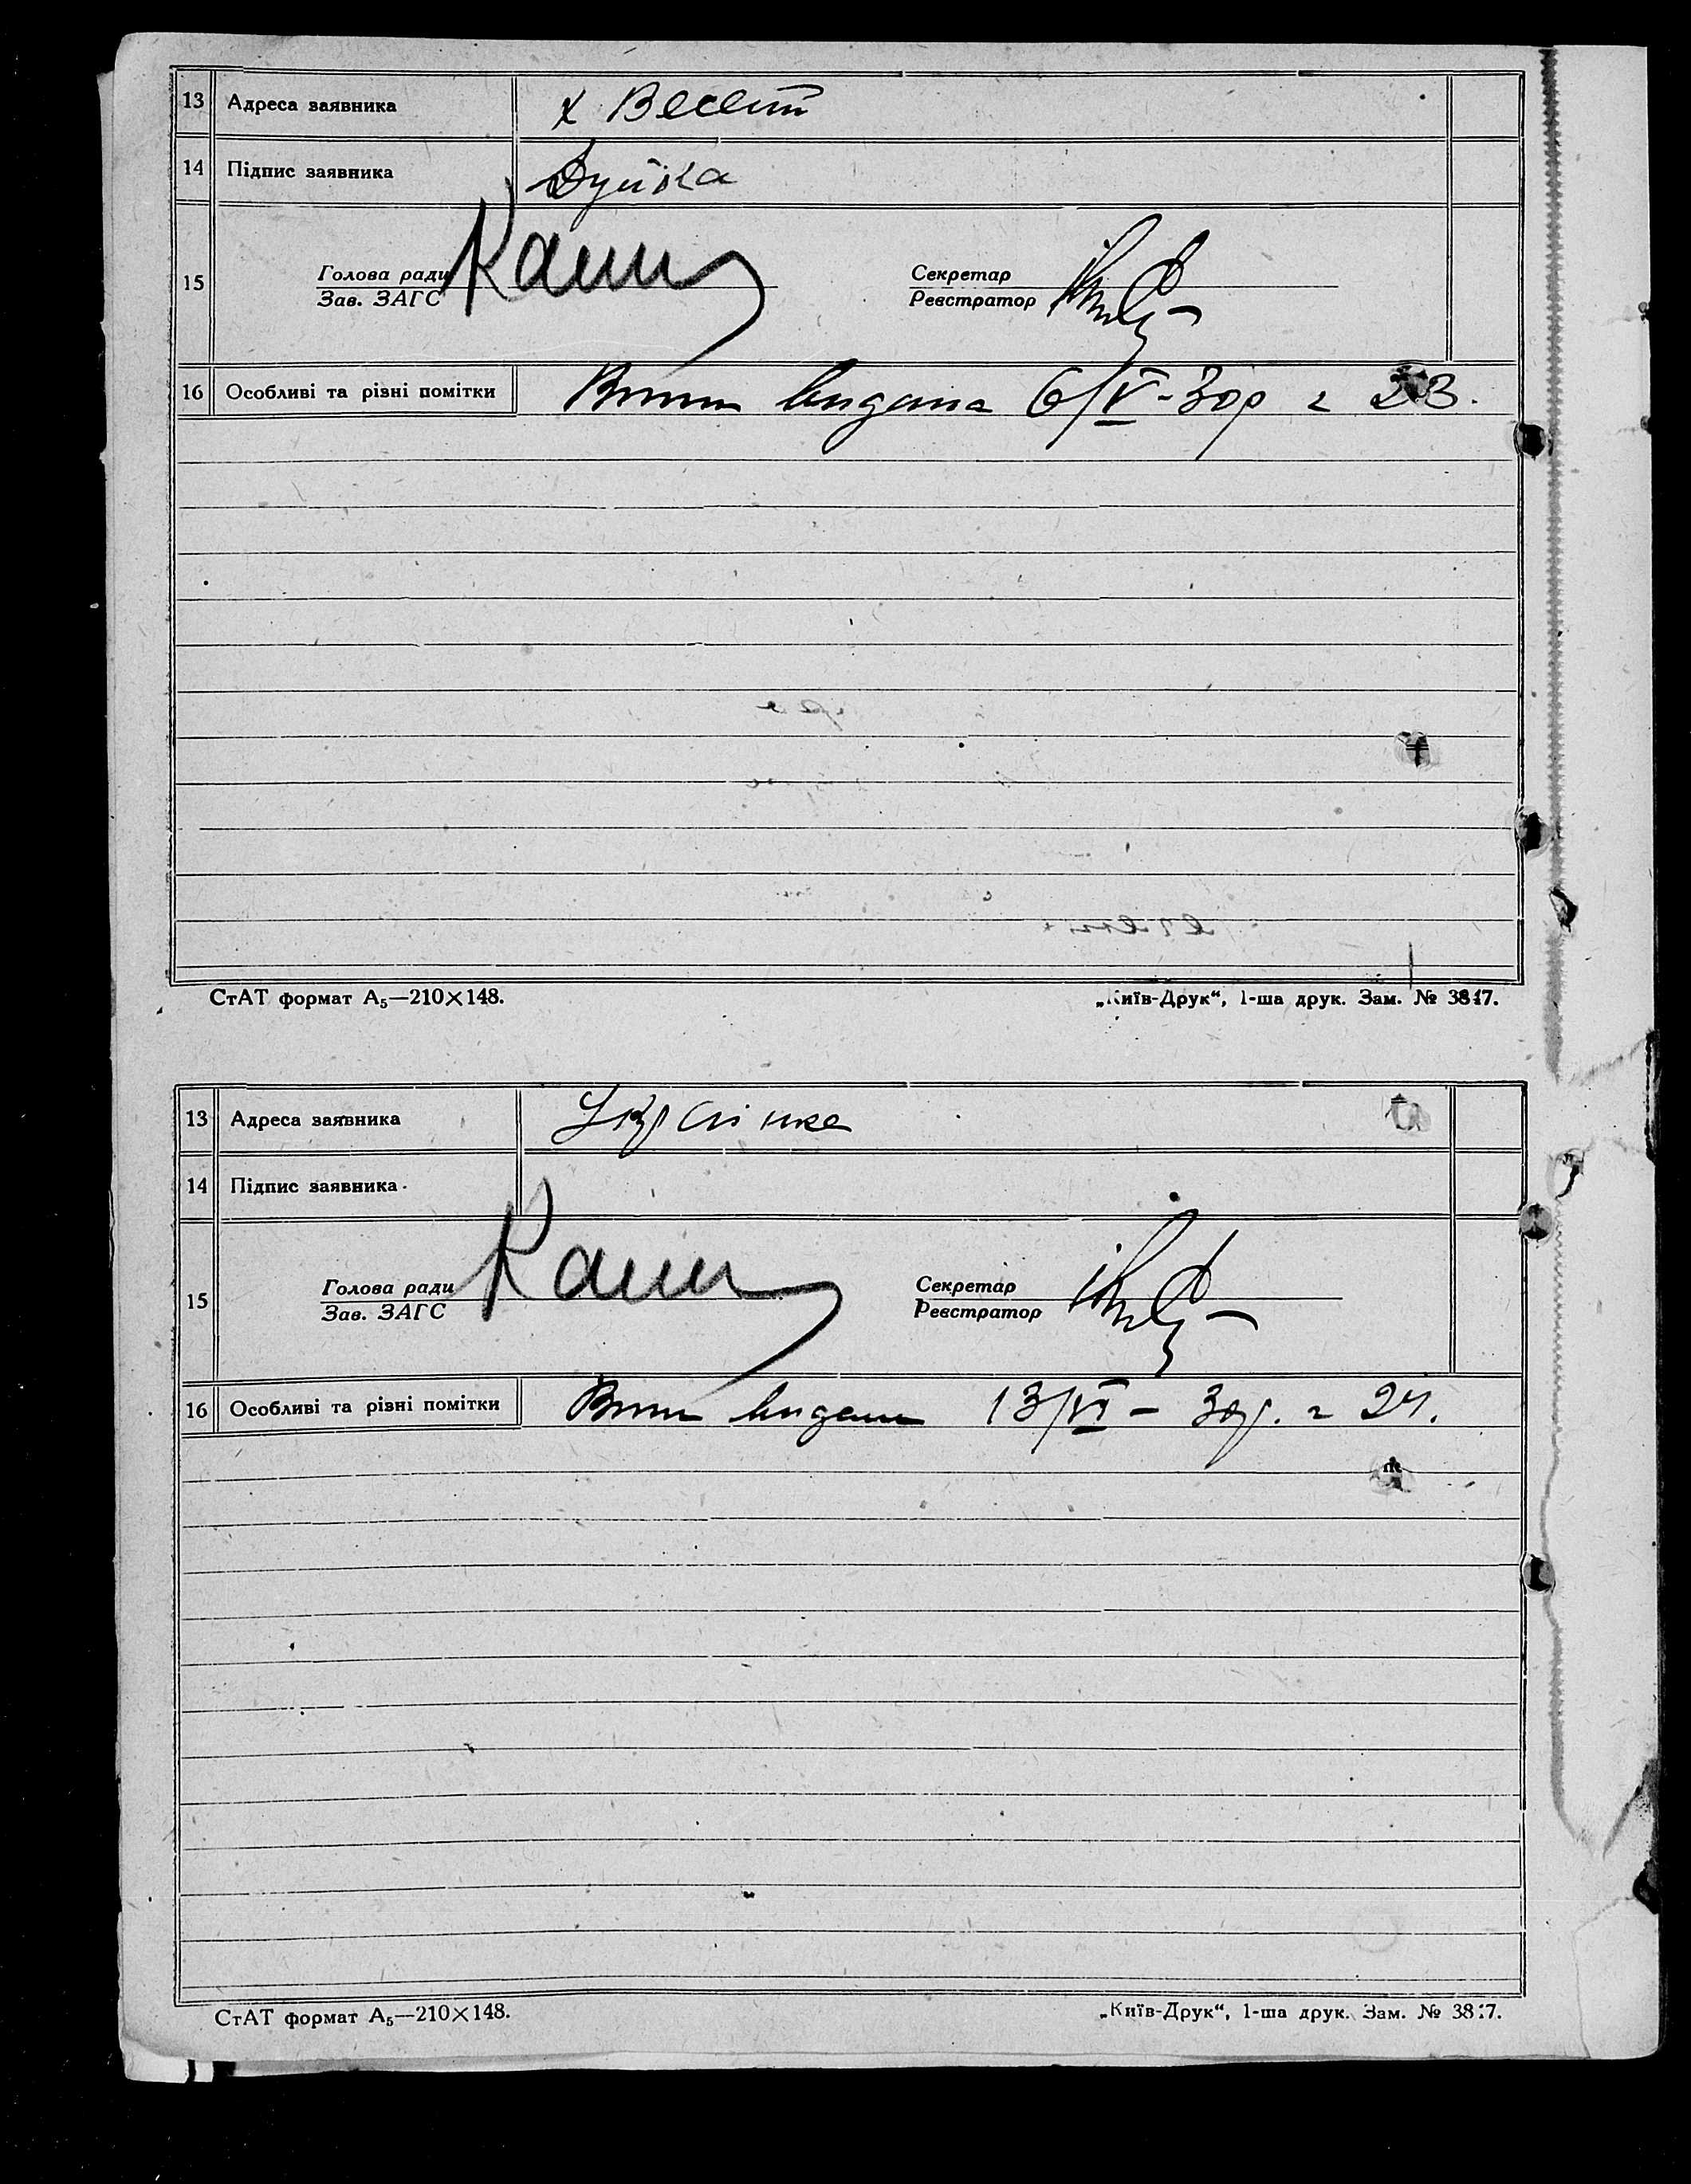 13 Адреса заявника х Веселий
14 Підпис заявника
15 Голова ради Секретар
Зав. ЗАГС Реєстратор
16 Особливі та різні помітки видана 6/V-30р № 23.
СтАТ формат А₅—210×148. „Київ-Друк“, 1-ша друк. Зам. № 3817.
13 Адреса заявника Українка
14 Підпис заявника
15 Голова ради Секретар
Зав. ЗАГС Реєстратор
16 Особливі та різні помітки видана 13/VI – 30р. № 24.
СтАТ формат А₅—210×148. „Київ-Друк“, 1-ша друк. Зам. № 3817.